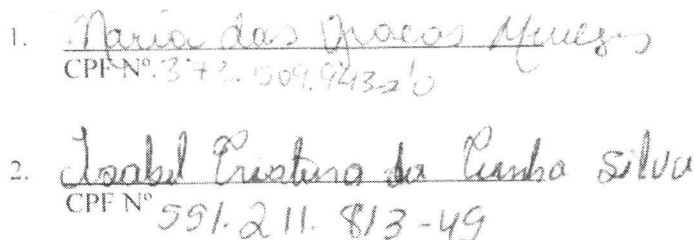 1. Maria das Graças Menezes
CPF Nº. 372.509.943-20
2. Isabel Cristina da Cunha Silva
CPF Nº 551.211.813-49